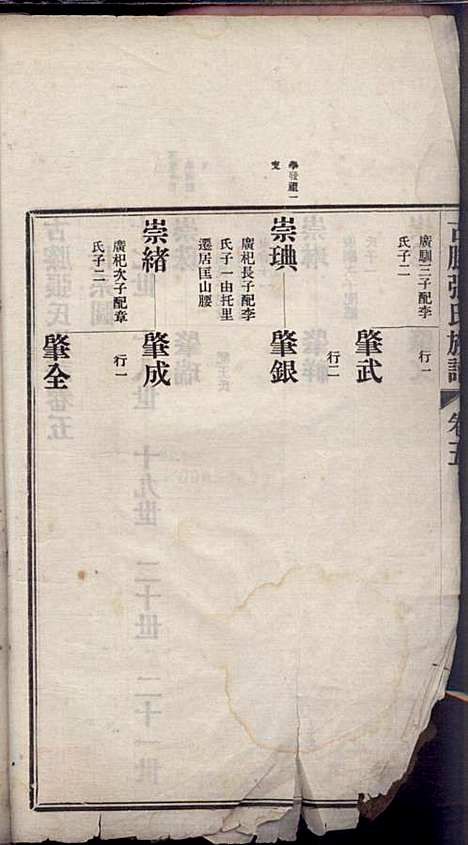 古滕張氏族譜
卷五
廣馴三子配李
氏子二
行一
肇武
行二
崇琠
肇銀
廣杞長子配李
氏子一由托里
遷居匡山腰
崇緒
肇成
廣杞次子配章
氏子二
行一
肇全